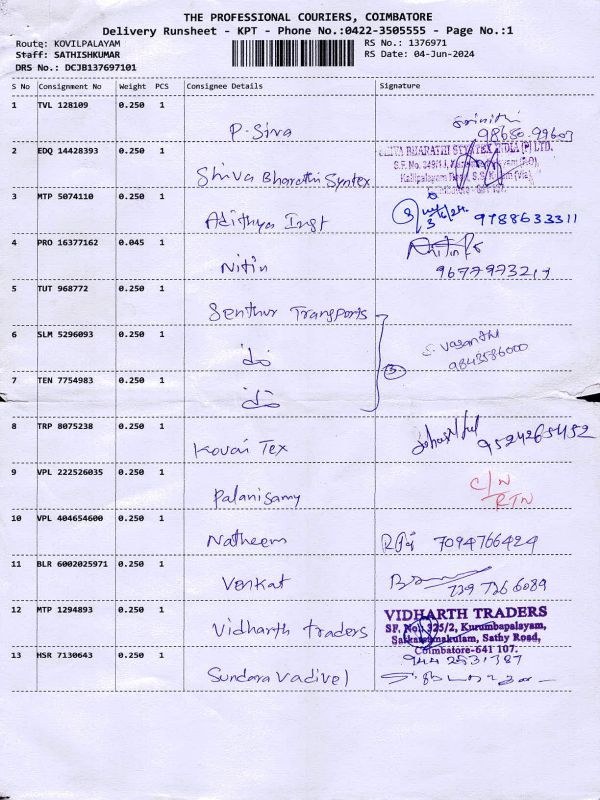 THE PROFESSIONAL COURIERS, COIMBATORE
Delivery Runsheet - KPT - Phone No.:0422-3505555 - Page No.:1
Route: KOVILPALAYAM
RS No.: 1376971
Staff: SATHISHKUMAR
RS Date: 04-Jun-2024
DRS No.: DCJB137697101
S No Consignment No Weight PCS Consignee Details Signature
1 TVL 128109 0.250 1
P. Siva
98650-99603
2 EDQ 14428393 0.250 1
Shiva Bharathi Syntex
SHIVA BHARATHI SYNTEX INDIA (P) LTD.
3 MTP 5074110 0.250 1
Adithya Inst
9788633311
4 PRO 16377162 0.045 1
Nitin
5 TUT 968772 0.250 1
Senthur Transports
6 SLM 5296093 0.250 1
S. Vasanthi
9843586000
7 TEN 7754983 0.250 1
3
8 TRP 8075238 0.250 1
Kovai Tex
9524265452
9 VPL 222526035 0.250 1
Palanisamy
C/N
RTN
10 VPL 404654600 0.250 1
Natheem
7094766424
11 BLR 6002025971 0.250 1
Venkat
729 726 6089
12 MTP 1294893 0.250 1
Vidharth traders
VIDHARTH TRADERS
SF. No. 325/2, Kurumbapalayam,
Sarkarsamakulam, Sathy Road,
Coimbatore-641 107.
13 HSR 7130643 0.250 1
Sundaravadivel
9442531387